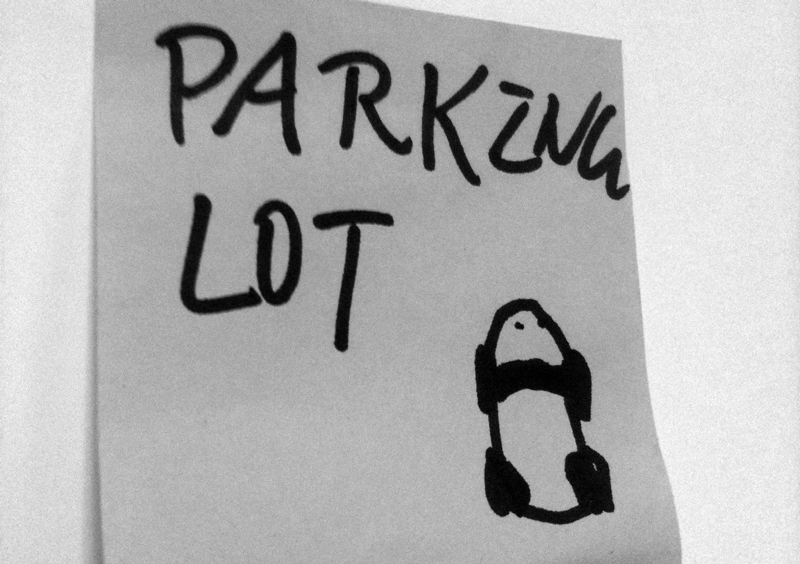 PARKING
LOT